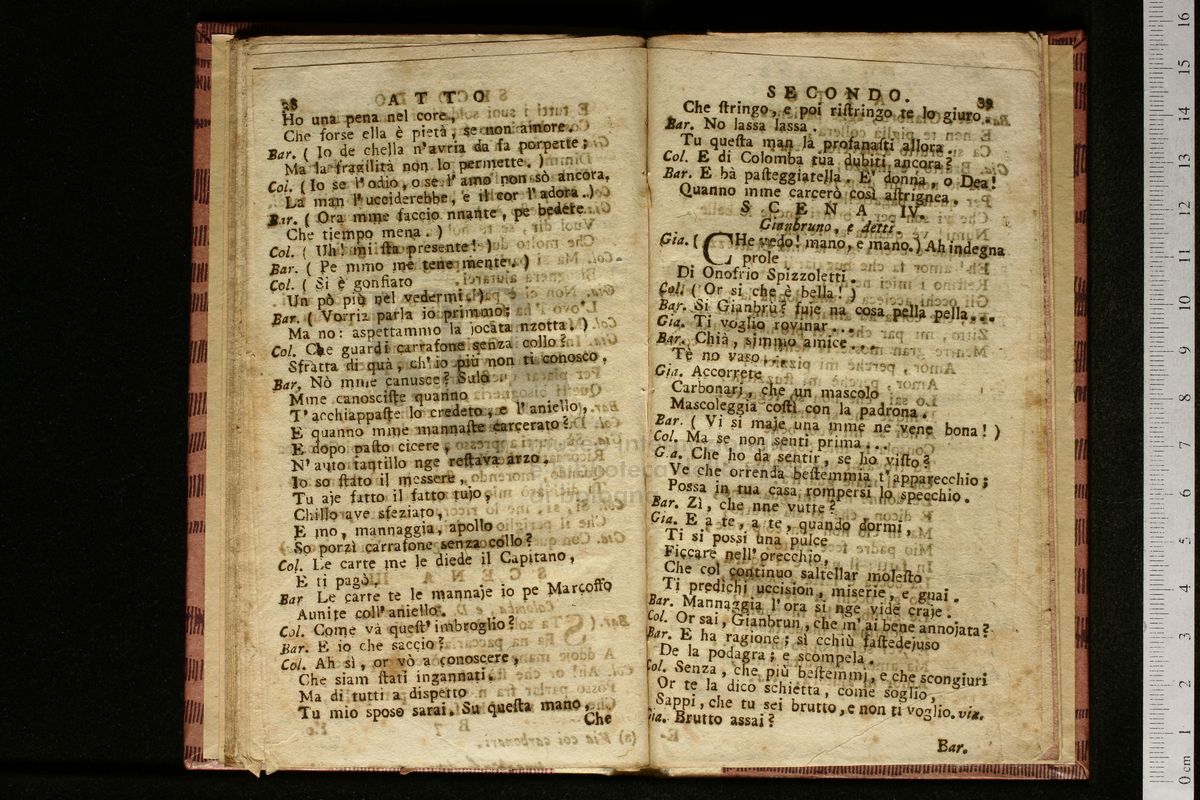 28 ATTO
Ho una pena nel core,
Che forse ella è pietà, se non amore.
Bar. ( Io de chella n'avria da fa porpette;
Ma la fragilità non lo permette. )
Col. ( Io se l'odio, o se l'amo non sò ancora,
La man l'ucciderebbe, e il cor l'adora. )
Bar. ( Ora mme faccio nnante, pe bedere
Che tiempo mena. )
Col. ( Uh! mi sta presente! )
Bar. ( Pe mmo me tene mente. )
Col. ( Si è gonfiato
Un pò più nel vedermi. )
Bar. ( Vorria parla io primmo;
Ma no: aspettammo la jocata nzotta. )
Col. Che guardi carrafone senza collo?
Sfratta di quà, ch'io più non ti conosco,
Bar. Nò mme canusce? Sulo
Mme canosciste quanno
T'acchiappaste lo credeto, e l'aniello,
E quanno mme mannaste carcerato?
E dopo pasto cicere,
N'auto tantillo nge restava arzo.
Io so stato il messere,
Tu aje fatto il fatto tujo,
Chillo ave sfeziato,
E mo, mannaggia, apollo
So porzì carrafone senza collo?
Col. Le carte me le diede il Capitano,
E ti pagò.
Bar Le carte te le mannaje io pe Marcoffo
Aunite coll'aniello.
Col. Come và quest'imbroglio?
Bar. E io che saccio?
Col. Ah sì, or vò a conoscere,
Che siam stati ingannati.
Ma di tutti a dispetto
Tu mio sposo sarai. Su questa mano,
Che
SECONDO. 39
Che stringo, e poi ristringo te lo giuro.
Bar. No lassa lassa.
Tu questa man la profanasti allora.
Col. E di Colomba tua dubiti ancora?
Bar. E bà pasteggiatella. E' donna, o Dea!
Quanno mme carcerò così astrignea.
SCENA IV.
Gianbruno, e detti.
Gia. ( CHe vedo! mano, e mano. ) Ah indegna
prole
Di Onofrio Spizzoletti.
Col. ( Or si che è bella! )
Bar. Si Gianbrù? fuje na cosa pella pella...
Gia. Ti voglio rovinar...
Bar. Chià, simmo amice...
Te no vaso...
Gia. Accorrete
Carbonari, che un mascolo
Mascoleggia costì con la padrona.
Bar. ( Vi si maje una mme ne vene bona! )
Col. Ma se non senti prima...
Gia. Che ho da sentir, se ho visto?
Ve che orrenda bestemmia t'apparecchio;
Possa in tua casa rompersi lo specchio.
Bar. Zì, che nne vutte?
Gia. E a te, a te, quando dormi,
Ti si possi una pulce
Ficcare nell'orecchio,
Che col continuo saltellar molesto
Ti predichi uccision, miserie, e guai.
Bar. Mannaggia l'ora si nge vide craje.
Col. Or sai, Gianbrun, che m'ai bene annojata?
Bar. E ha ragione; sì cchiù fastedejuso
De la podagra; e scompela.
Col. Senza, che più bestemmj, e che scongiuri
Or te la dico schietta, come soglio,
Sappi, che tu sei brutto, e non ti voglio. via.
Gia. Brutto assai?
Bar.